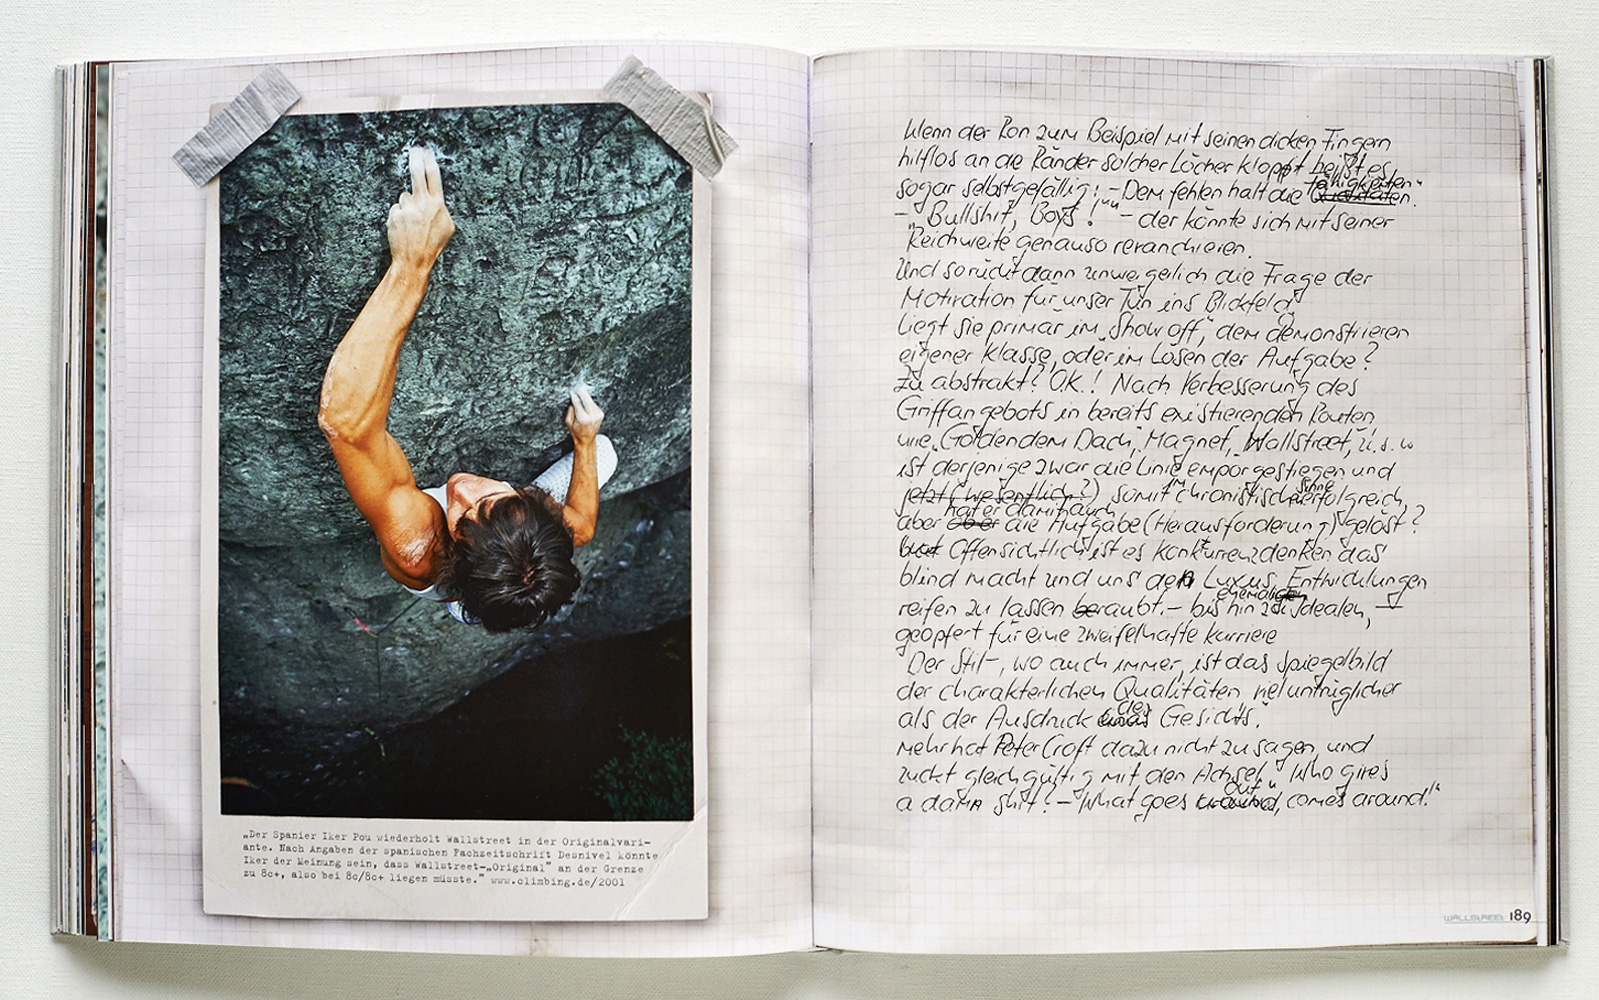 „Der Spanier Iker Pou wiederholt Wallstreet in der Originalvari-
ante. Nach Angaben der spanischen Fachzeitschrift Desnivel könnte
Iker der Meinung sein, dass Wallstreet-„Original" an der Grenze
zu 8c+, also bei 8c/8c+ liegen müsste." www.climbing.de/2001
Wenn der Ron zum Beispiel mit seinen dicken Fingern
hilflos an die Ränder solcher Löcher kloppt heißt es
sogar selbstgefällig: - Dem fehlen halt die Fähigkeiten".
- „Bullshit, Boys!"" - der könnte sich mit seiner
Reichweite genauso revanchieren.
Und so rückt dann unweigerlich die Frage der
Motivation für unser Tun ins Blickfeld
Liegt sie primär im „Show off", dem demonstrieren
eigener Klasse, oder im Lösen der Aufgabe?
Zu abstrakt? OK.! Nach Verbesserung des
Griffangebots in bereits existierenden Routen
wie „Goldendem Dach", Magnet, Wallstreet, u.s.w
ist derjenige zwar die Linie emporgestiegen und
jetzt (wesentlich?) somit im chronistischen Sinne erfolgreich,
aber hat er damit auch die Aufgabe (Herausforderung) gelöst?
Offensichtlich ist es Konkurrenzdenken das
blind macht und uns den Luxus, Entwicklungen
reifen zu lassen beraubt. - bis hin zu ehemaligen Idealen, -
geopfert für eine zweifelhafte Karriere
Der Stil -, wo auch immer, ist das Spiegelbild
der charakterlichen Qualitäten, viel untrüglicher
als der Ausdruck des Gesichts."
Mehr hat Peter Croft dazu nicht zu sagen, und
zuckt gleichgültig mit den Achsel „Who gives
a damn shit? - „What goes out, comes around."
WALLSTREET 189